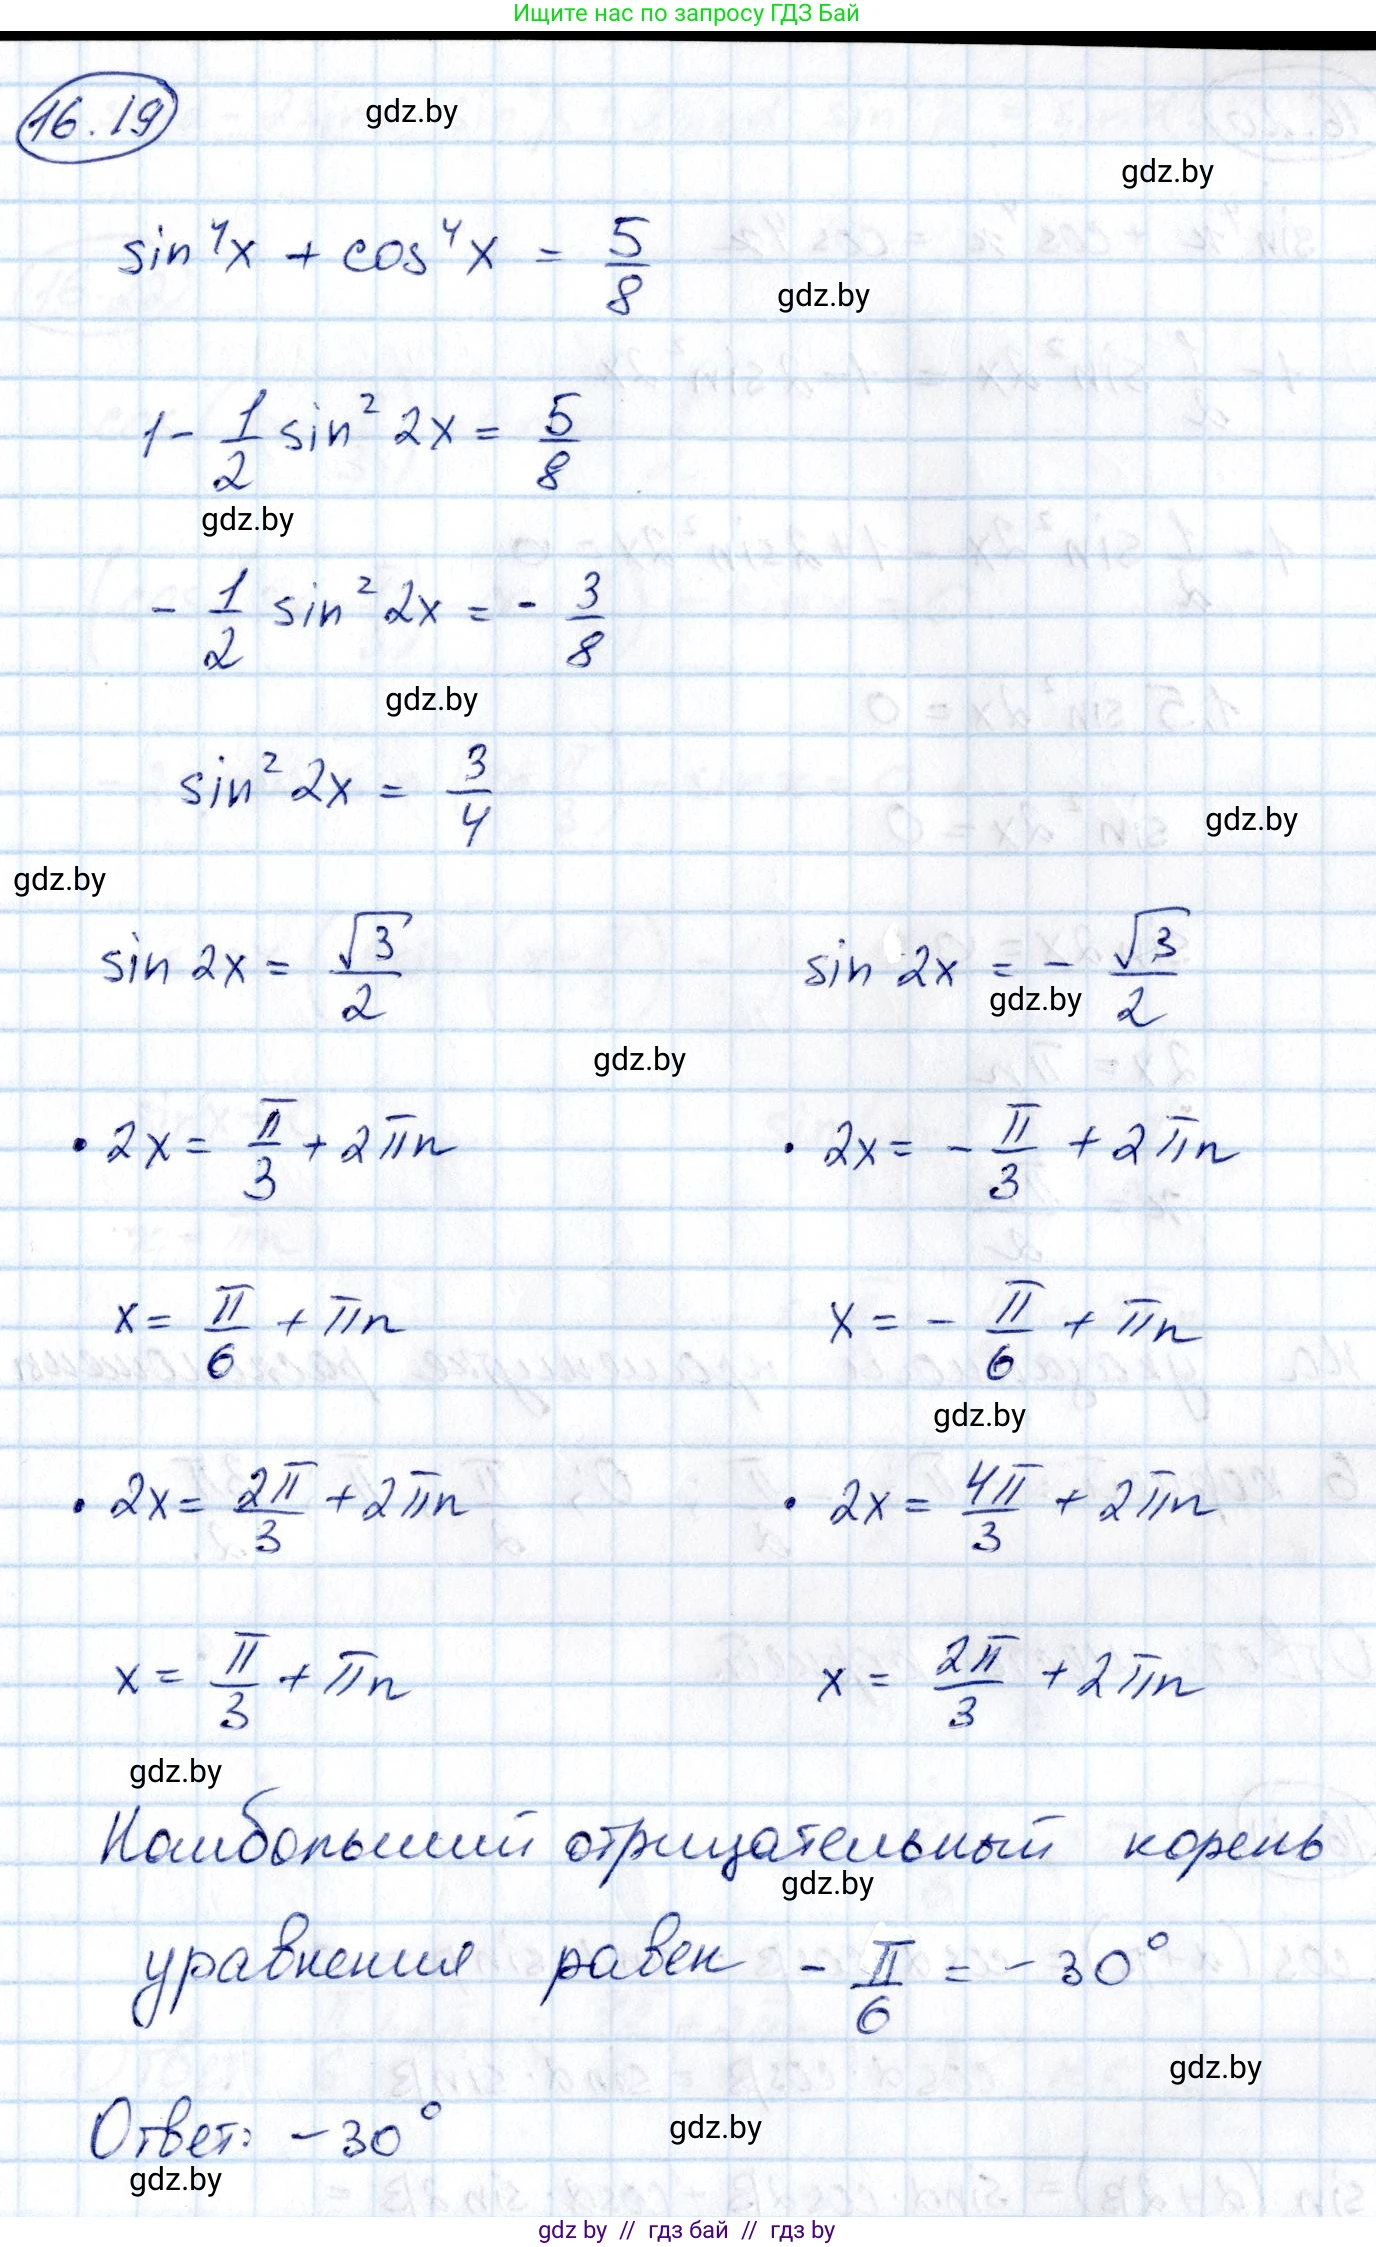 Ищите нас по запросу ГДЗ Бай
16.19
gdz.by
gdz.by
sin⁴x + cos⁴x = 5/8
gdz.by
1 - 1/2 sin² 2x = 5/8
gdz.by
- 1/2 sin² 2x = - 3/8
gdz.by
sin² 2x = 3/4
gdz.by
gdz.by
sin 2x = √3/2 sin 2x = - √3/2
gdz.by
gdz.by
• 2x = π/3 + 2πn • 2x = - π/3 + 2πn
x = π/6 + πn x = - π/6 + πn
gdz.by
• 2x = 2π/3 + 2πn • 2x = 4π/3 + 2πn
x = π/3 + πn x = 2π/3 + 2πn
gdz.by
Наибольший отрицательный корень
gdz.by
уравнения равен - π/6 = - 30°
gdz.by
Ответ: - 30°
gdz.by
gdz.by
gdz by // гдз бай // гдз by